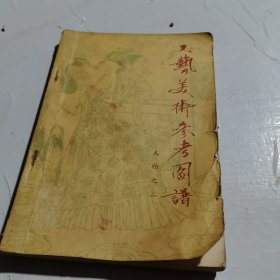 工艺美術参考图譜
人物之二